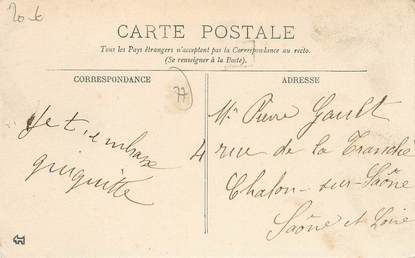 20 €
CARTE POSTALE
Tous les Pays étrangers n'acceptent pas la Correspondance au recto.
(Se renseigner à la Poste).
CORRESPONDANCE
77
Je t'embrasse
guiguitte
ADRESSE
Mr Pierre Gault
4 rue de la Tranchée
Chalon-sur-Saône
Saône et Loire